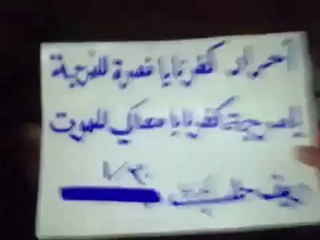 أحرار كفرنايا نصرة للحرية
يا حرية كفرنايا معاكي للموت
ريف حلب
١/٣٠